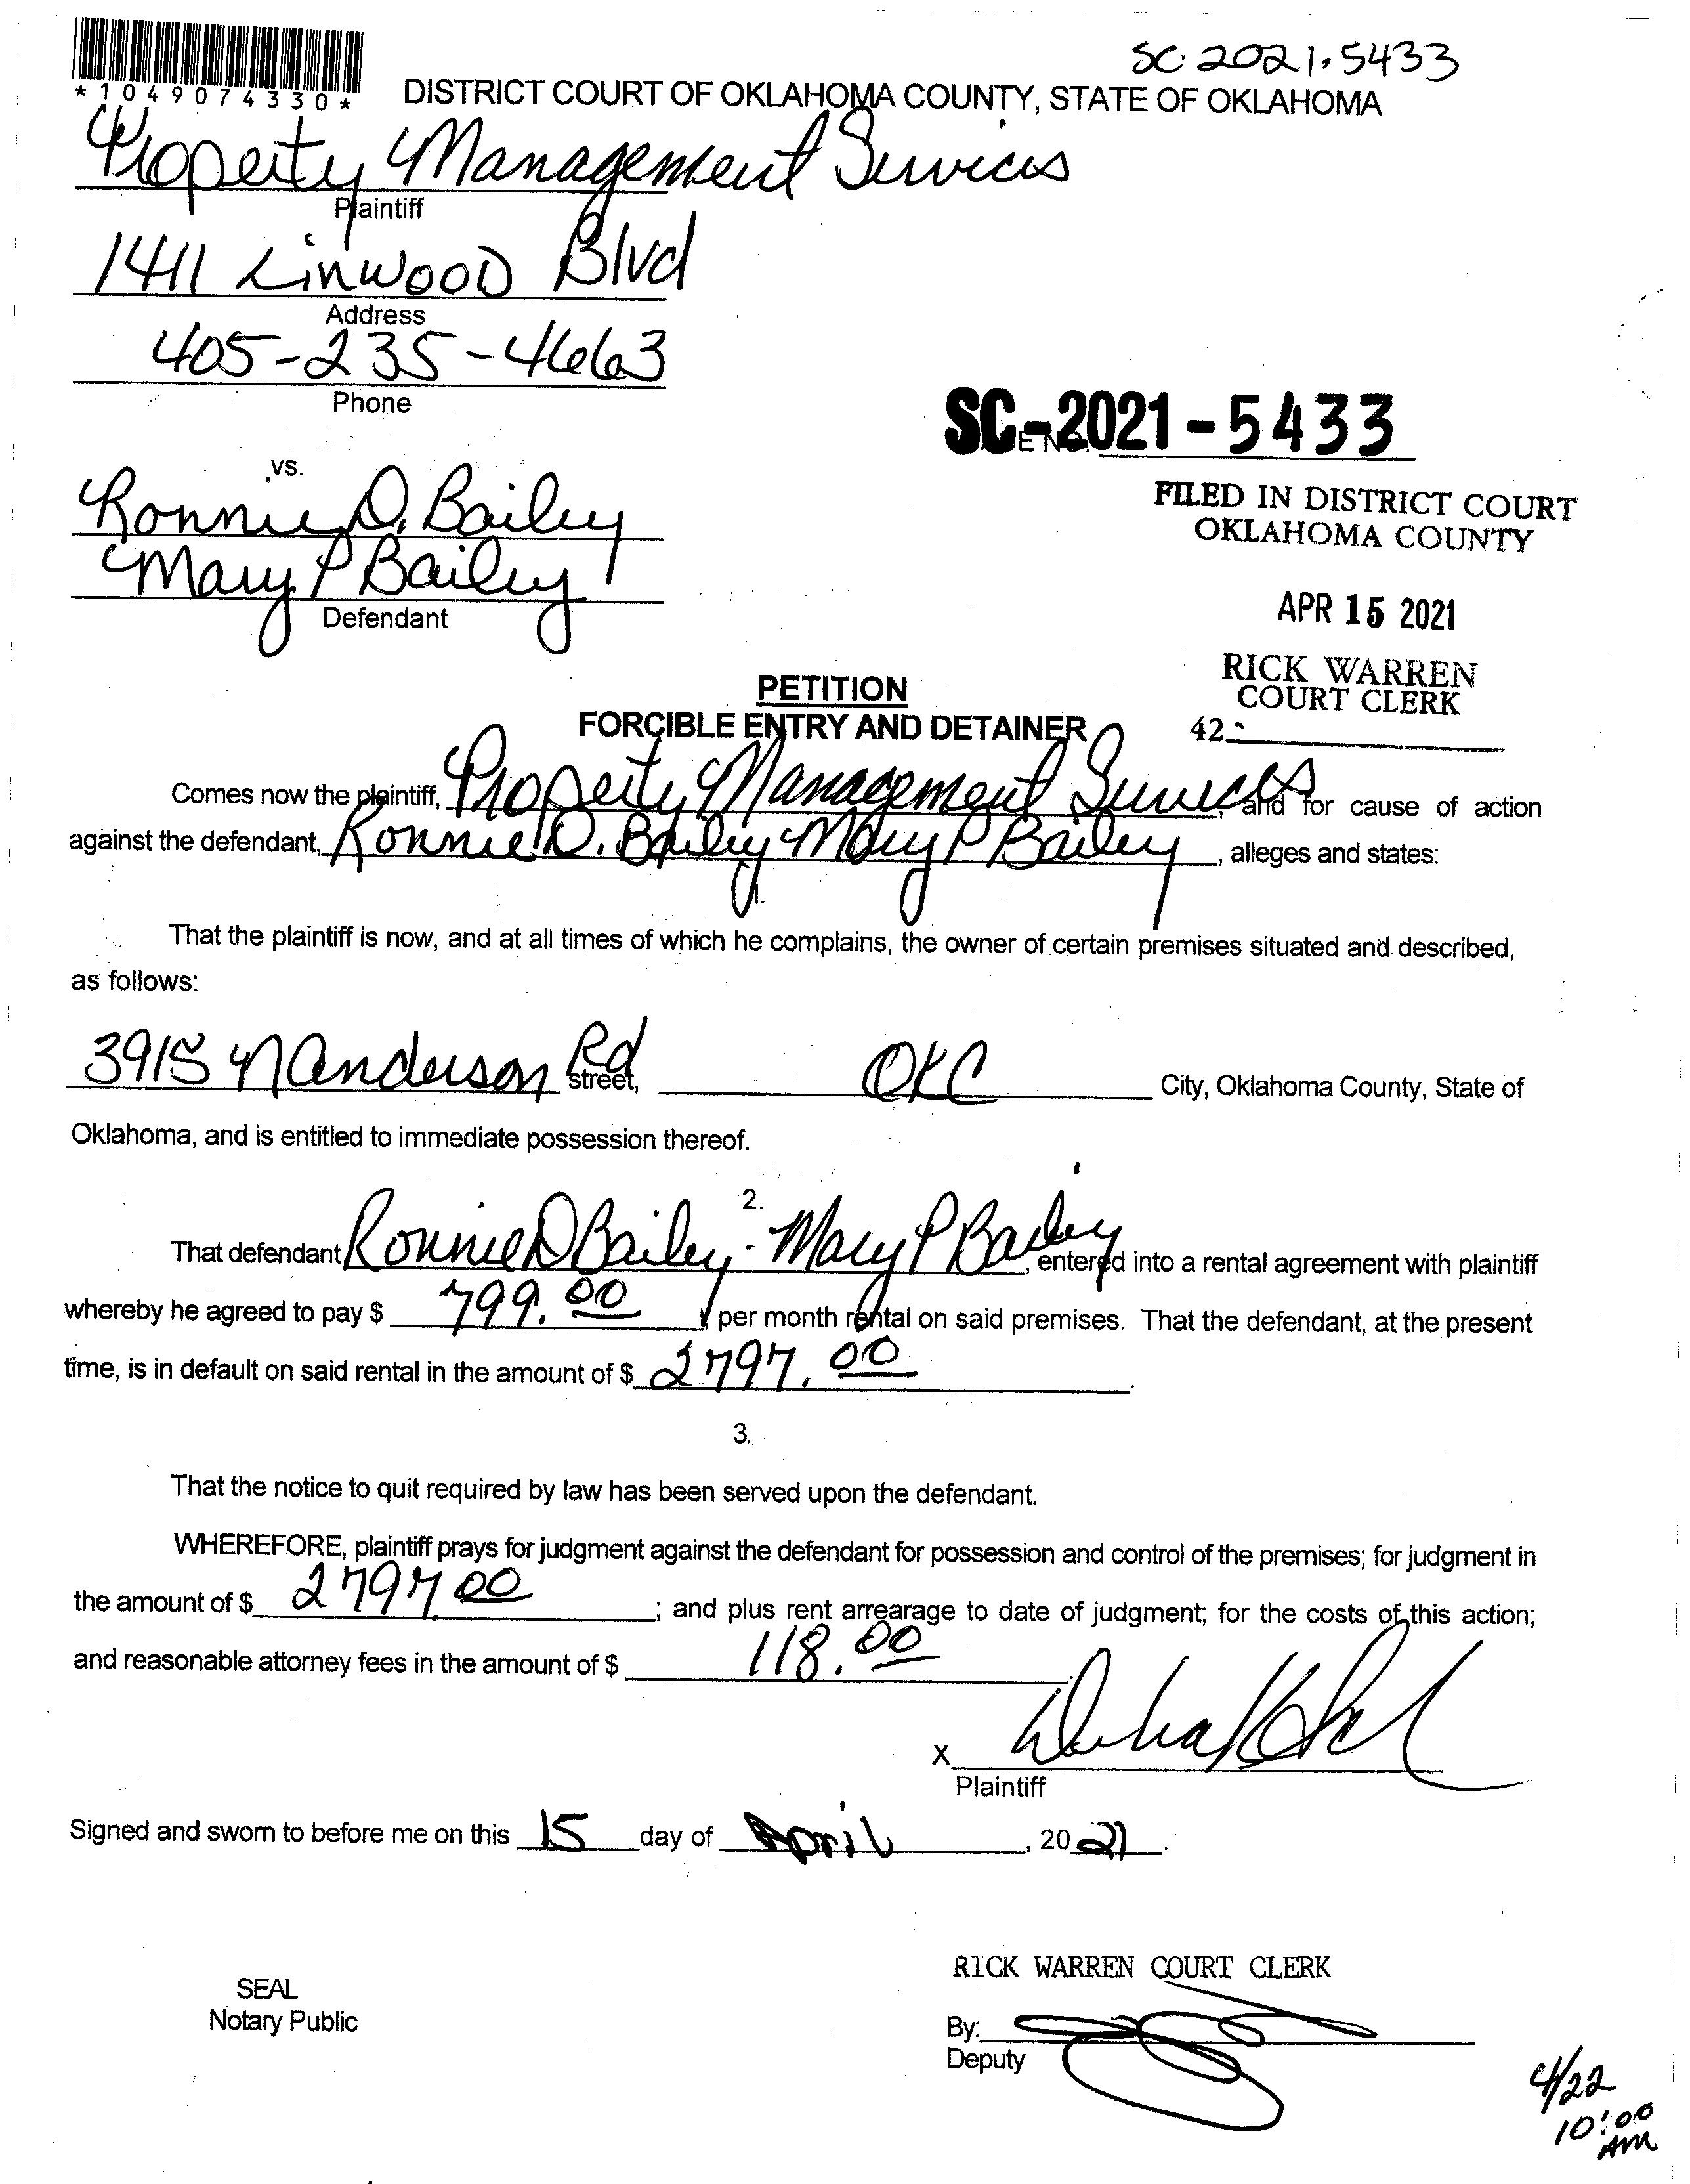 SC. 2021. 5433
*1049074330*
DISTRICT COURT OF OKLAHOMA COUNTY, STATE OF OKLAHOMA
Property Management Services
Plaintiff
1411 Linwood Blvd
Address
405-235-4663
Phone
SC-2021-5433
vs.
Ronnie D. Bailey
Mary P Bailey
Defendant
FILED IN DISTRICT COURT
OKLAHOMA COUNTY
APR 15 2021
RICK WARREN
COURT CLERK
42
PETITION
FORCIBLE ENTRY AND DETAINER
Comes now the plaintiff, Property Management Services, and for cause of action
against the defendant, Ronnie D. Bailey Mary P Bailey, alleges and states:
1.
That the plaintiff is now, and at all times of which he complains, the owner of certain premises situated and described,
as follows:
3915 N Anderson Rd street, OKC City, Oklahoma County, State of
Oklahoma, and is entitled to immediate possession thereof.
2.
That defendant Ronnie D Bailey - Mary P Bailey, entered into a rental agreement with plaintiff
whereby he agreed to pay $ 799.00 per month rental on said premises. That the defendant, at the present
time, is in default on said rental in the amount of $ 2797.00.
3.
That the notice to quit required by law has been served upon the defendant.
WHEREFORE, plaintiff prays for judgment against the defendant for possession and control of the premises; for judgment in
the amount of $ 2797.00; and plus rent arrearage to date of judgment; for the costs of this action;
and reasonable attorney fees in the amount of $ 118.00
X
Plaintiff
Signed and sworn to before me on this 15 day of April, 2021.
SEAL
Notary Public
RICK WARREN COURT CLERK
By:
Deputy
4/22
10:00
AM